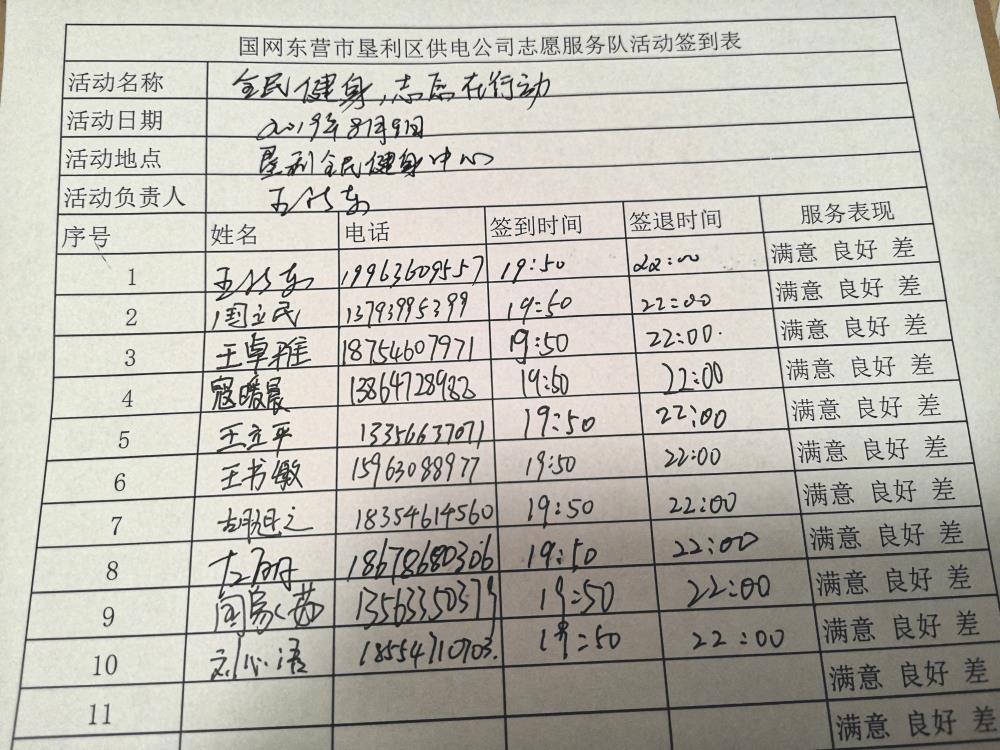 国网东营市垦利区供电公司志愿服务队活动签到表
活动名称 全民健身,志愿在行动
活动日期 2019年8月9日
活动地点 垦利全民健身中心
活动负责人
序号 姓名 电话 签到时间 签退时间 服务表现
1 19963609557 19:50 22:00 满意 良好 差
2 国立民 13793995399 19:50 22:00 满意 良好 差
3 王卓雅 18754607971 19:50 22:00. 满意 良好 差
4 寇暖晨 13864728982 19:50 22:00 满意 良好 差
5 王立平 13356637071 19:50 22:00 满意 良好 差
6 王书敏 15963088977 19:50 22:00 满意 良好 差
7 胡旭之 18354614560 19:50 22:00 满意 良好 差
8 18678680306 19:50 22:00 满意 良好 差
9 19:50 22:00 满意 良好 差
10 刘心语 19:50 22:00 满意 良好 差
11 满意 良好 差
满意 良好 差